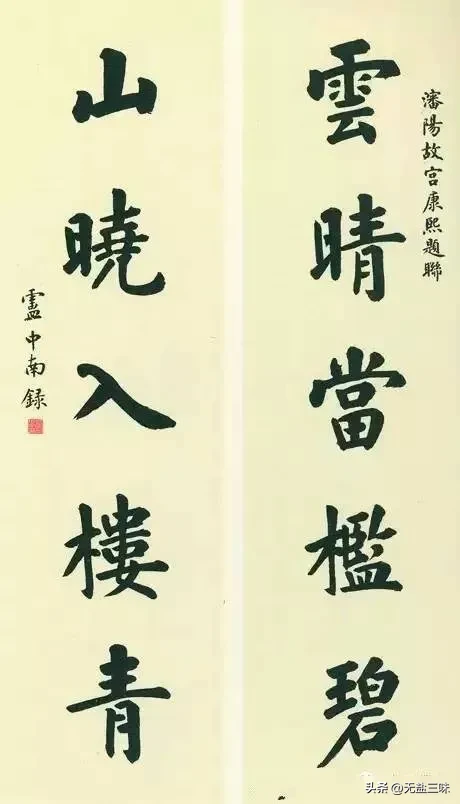 瀋陽故宮康熙題聯
雲晴當檻碧
山曉入樓青
盧中南録
头条 @无盐三味